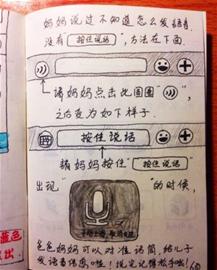 妈妈说过不知道怎么发语音
没有“按住说话”,方法在下面
请妈妈点击此图圈“
”,
之后变为如下样子
按住说话
请妈妈按住“按住说话”
出现“
”的时候,
爸爸妈妈可以对准话筒,给儿子
发语音信息啦!说完记得松手啦!
蓝色
出